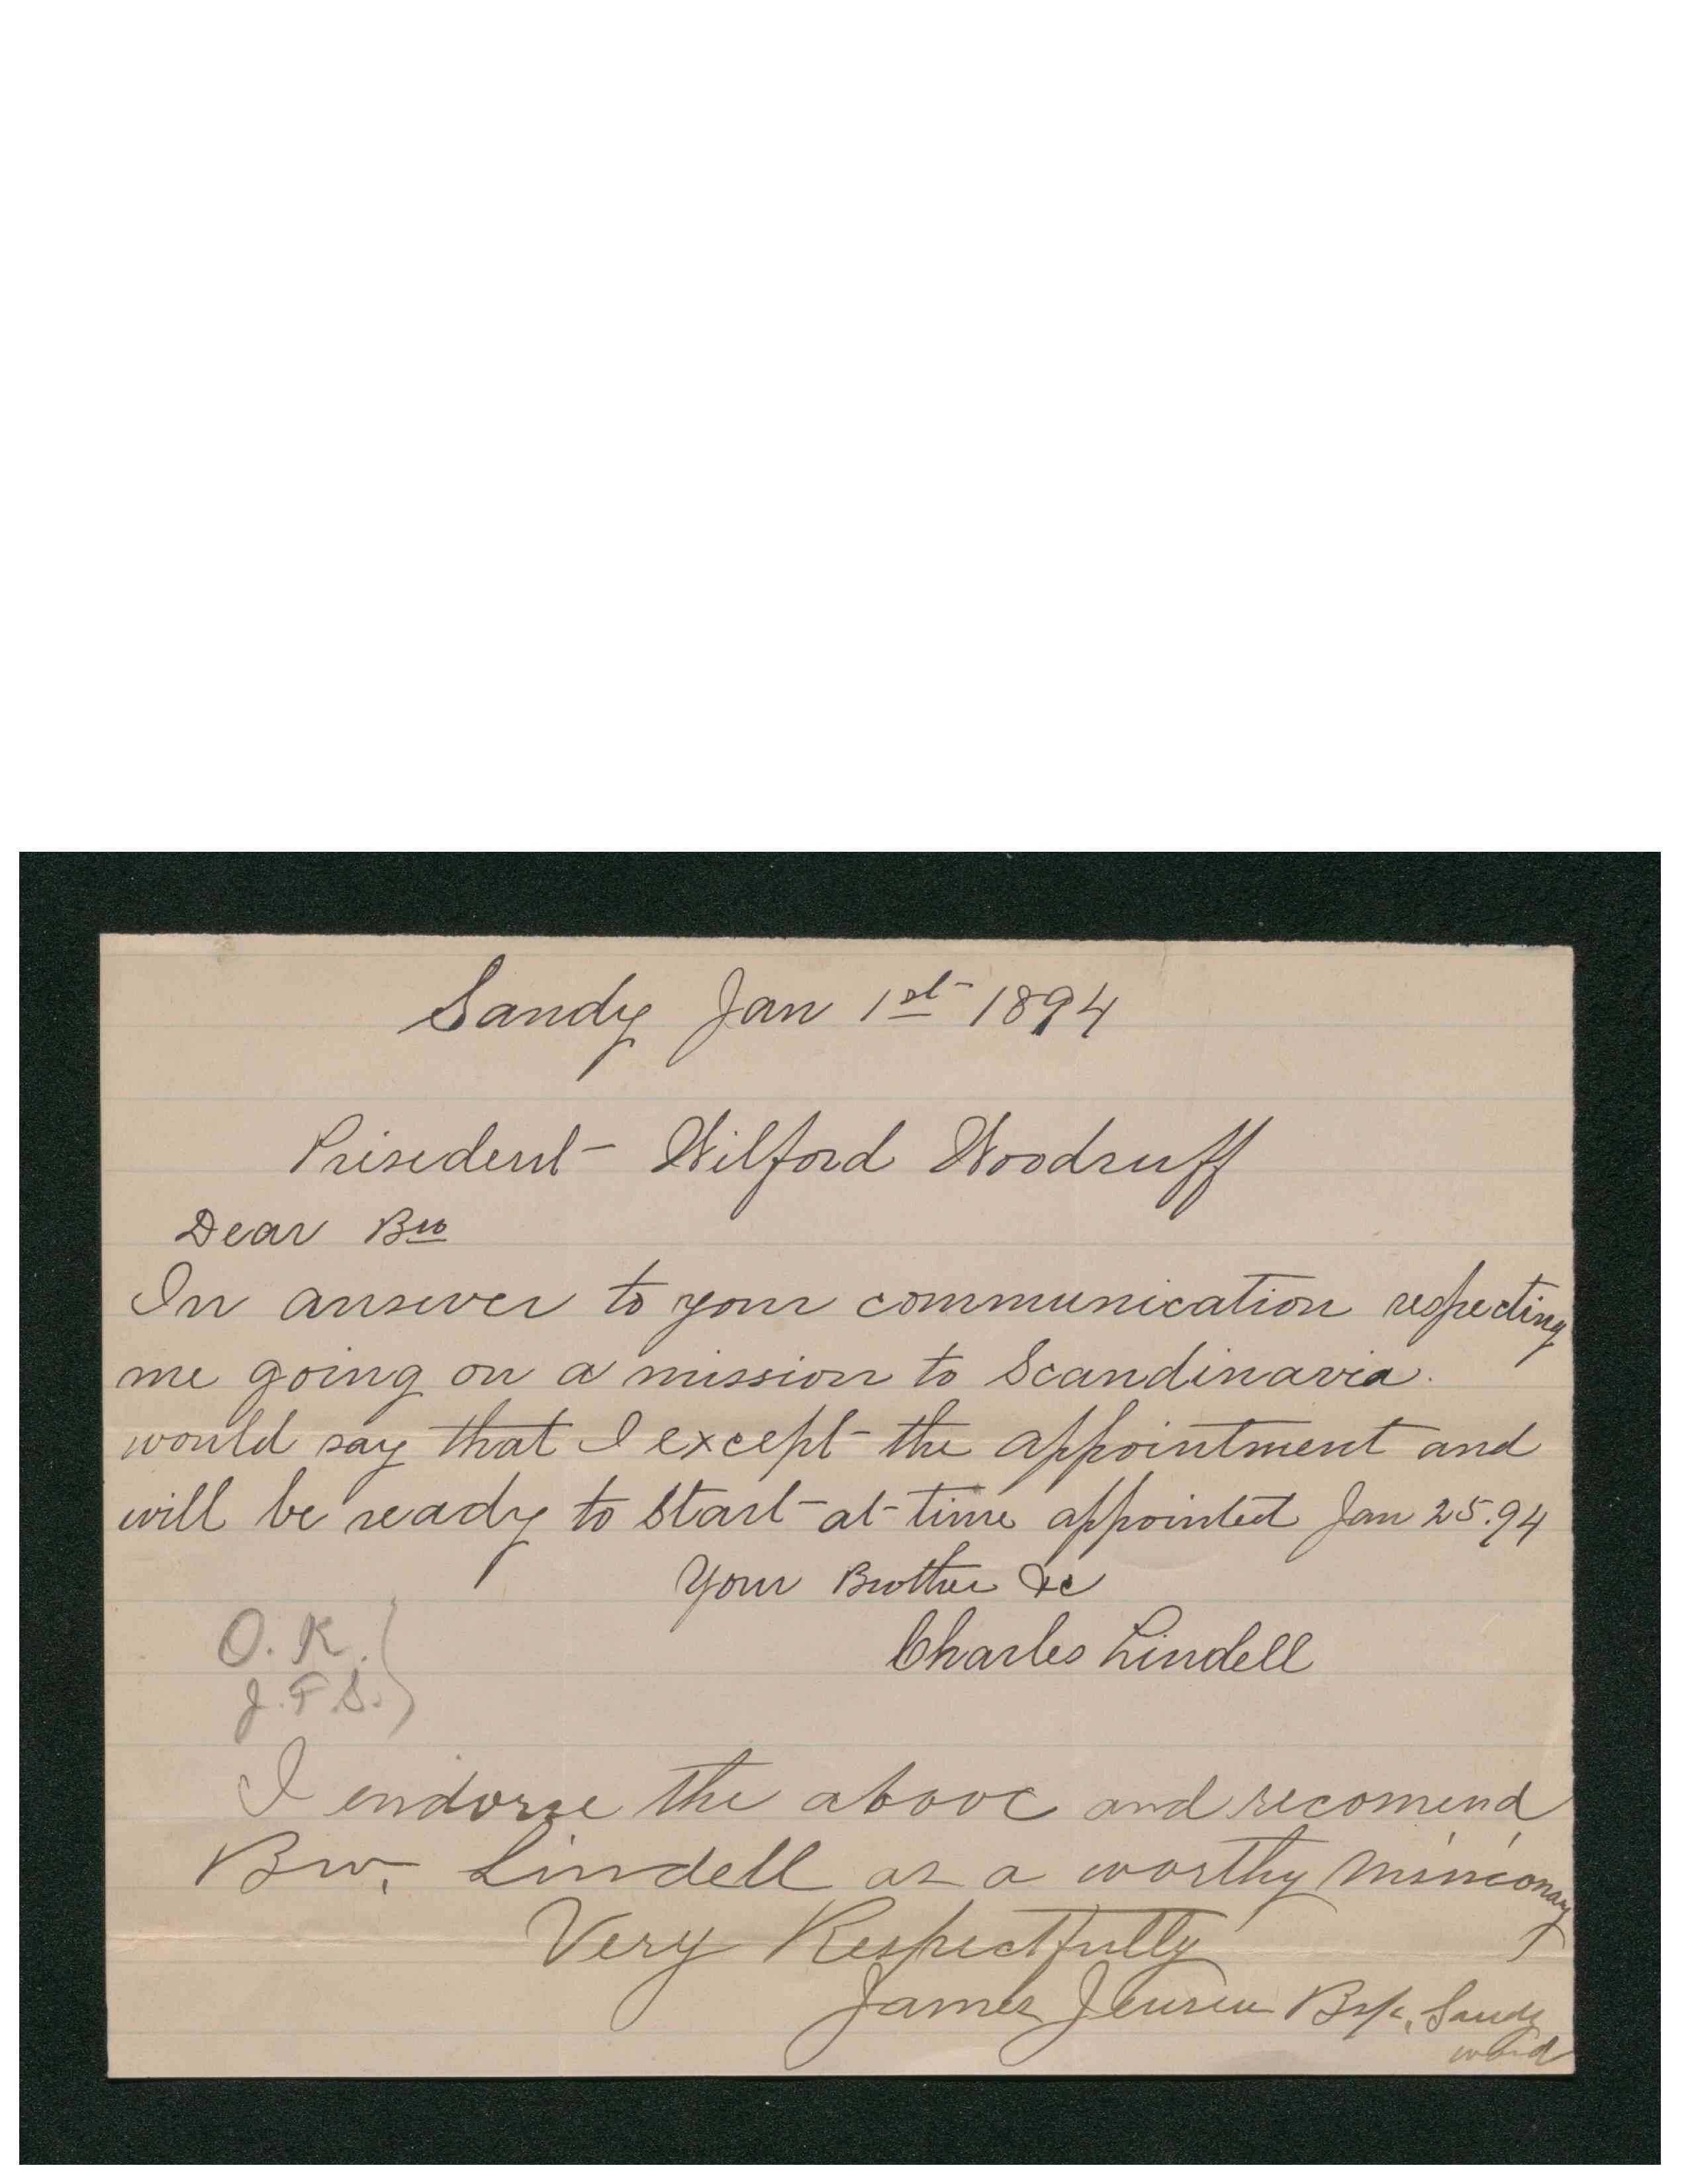 Sandy Jan 1st 1894
Prisedent Wilford Woodruff
Dear Bro
In answer to your communication respecting
me going on a mission to Scandinavia.
would say that I except the appointment and
will be ready to start at time appointed Jan 25.94
Your Brother &c
Charles Lindell
O. K.
J. F. S.
I endorse the above and recomend
Bro. Lindell as a worthy
Very Respectfully
James Jensen Bsp. Sandy
ward